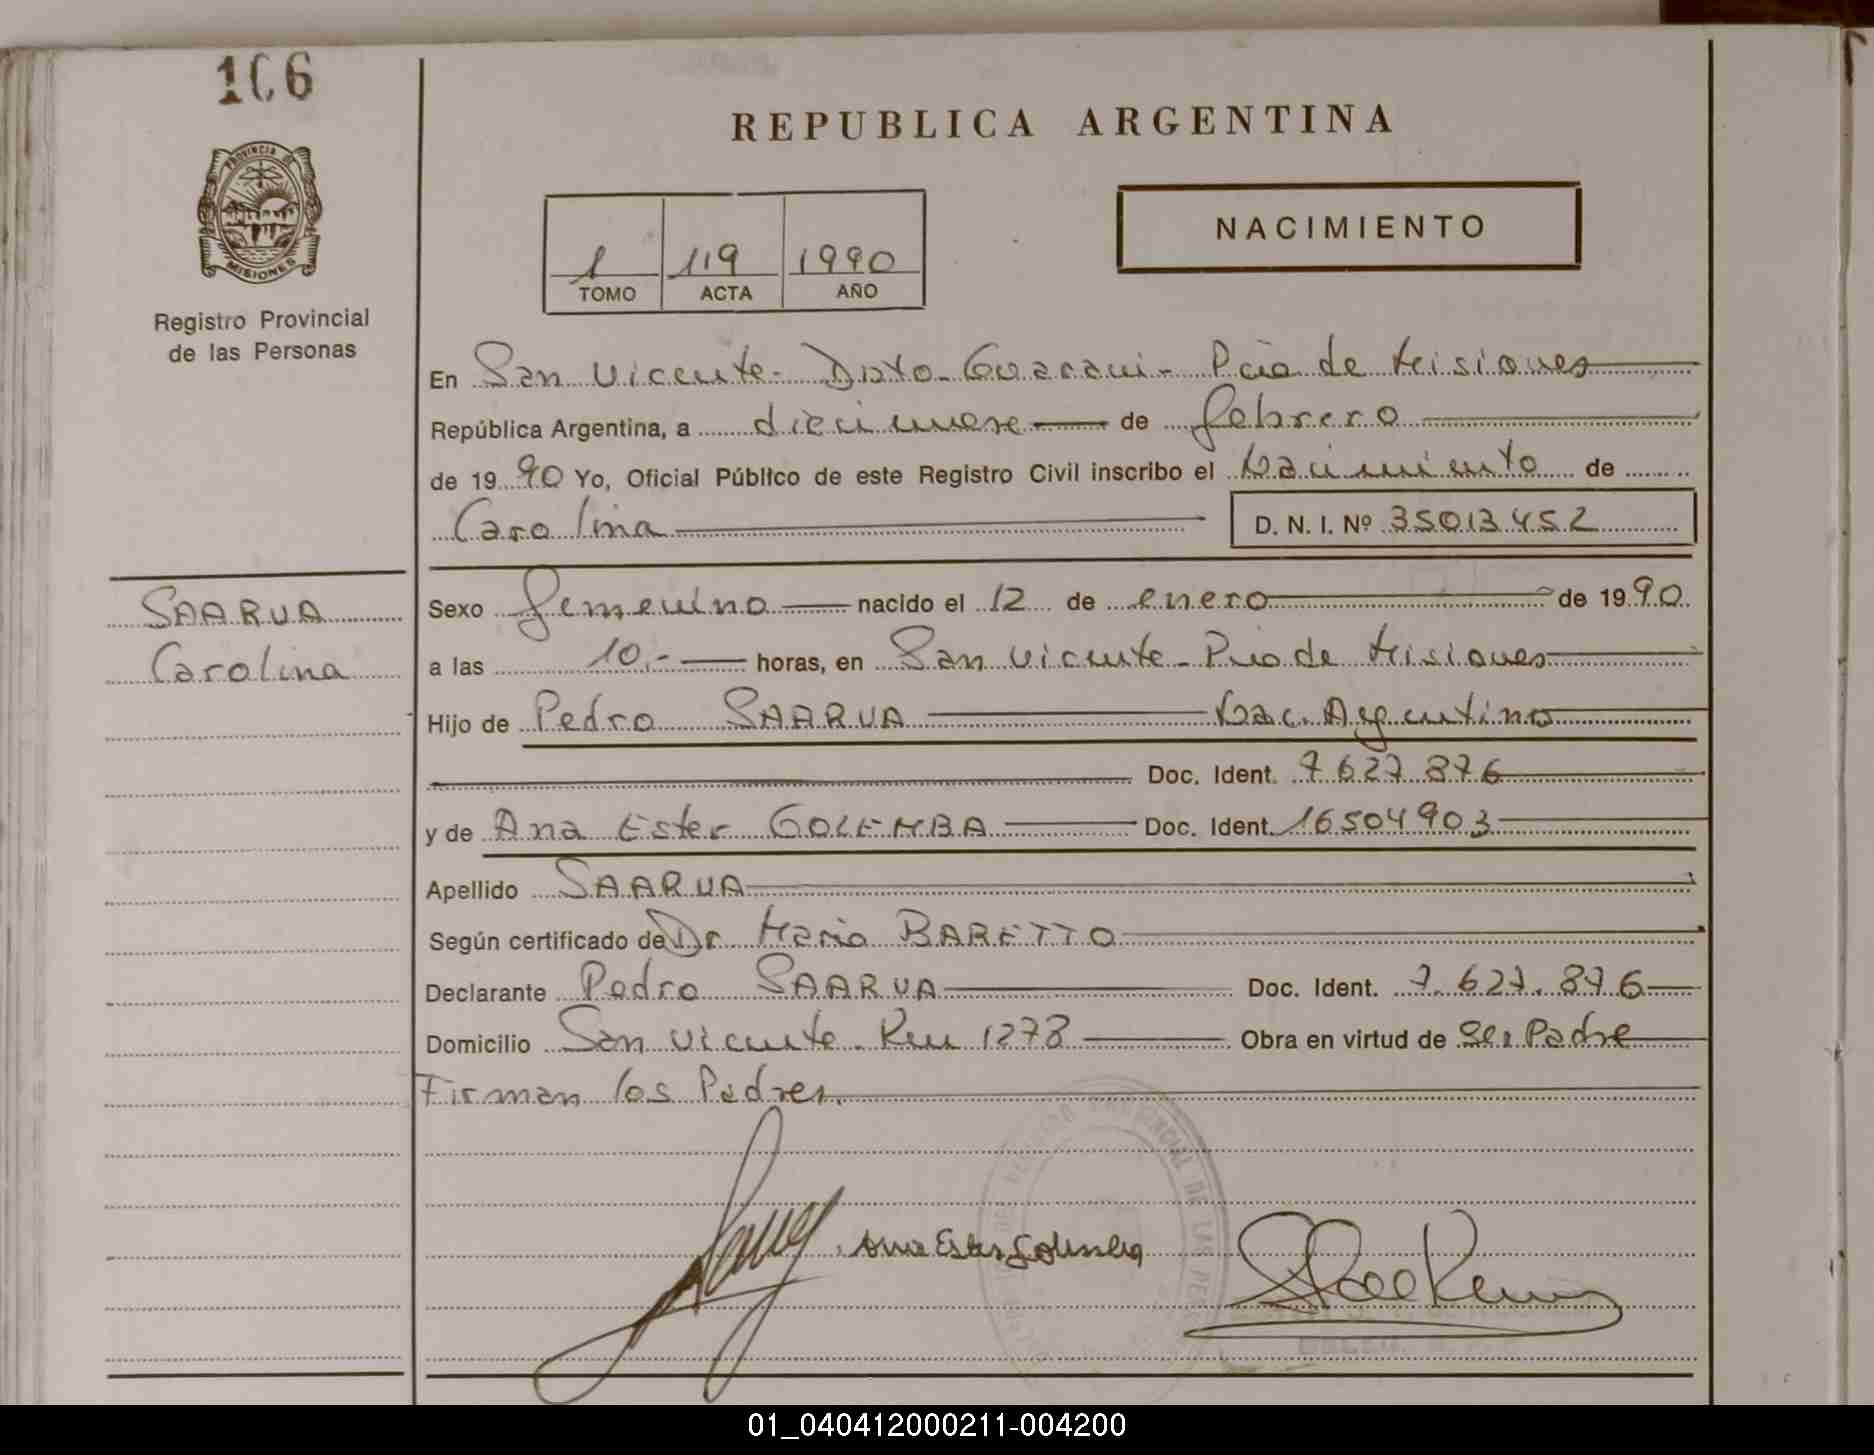 106
REPUBLICA ARGENTINA
PROVINCIA DE
MISIONES
NACIMIENTO
1 119 1990
TOMO ACTA AÑO
Registro Provincial
de las Personas
En San Vicente - Dpto. Guarani - Pcia de Misiones
República Argentina, a diecinueve de febrero
de 1990 Yo, Oficial Público de este Registro Civil inscribo el Nacimiento de
Carolina D. N. I. Nº 35013452
SAARUA
Carolina
Sexo femenino nacido el 12 de enero de 1990
a las 10.- horas, en San Vicente - Pcia de Misiones
Hijo de Pedro SAARUA Nac. Argentino
Doc. Ident. 7627876
y de Ana Ester GOLEMBA Doc. Ident. 16504903
Apellido SAARUA
Según certificado de Dr Mario BARETTO
Declarante Pedro SAARUA Doc. Ident. 7.627.876
Domicilio San Vicente. Km 1278 Obra en virtud de ser Padre
Firman los Padres.
Ana Ester Golemba
01_040412000211-004200